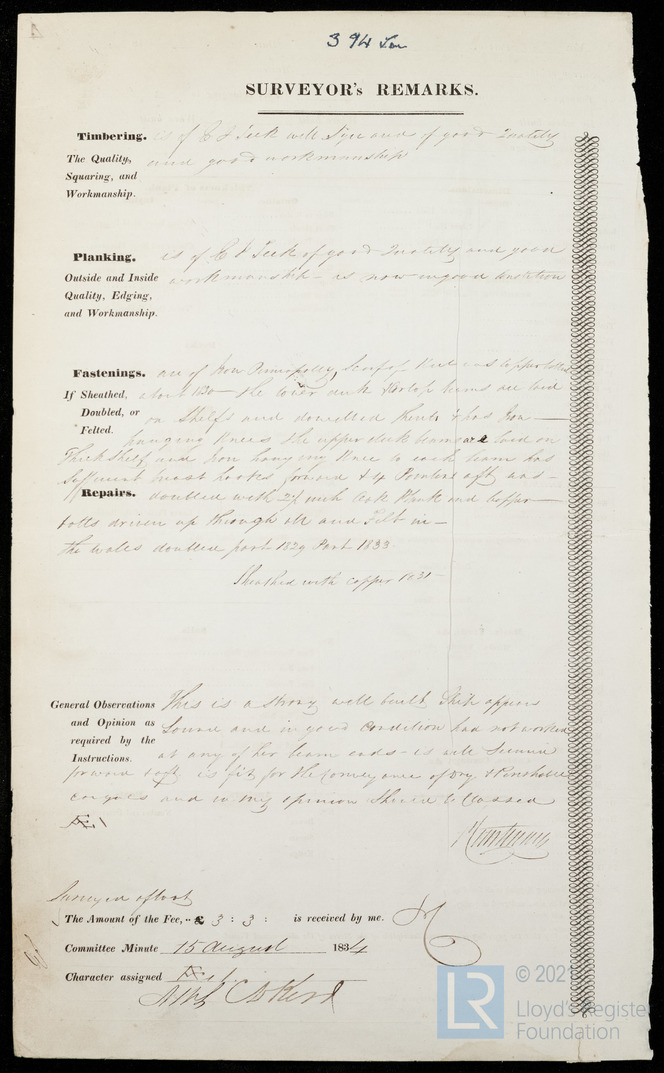 394 Lon
SURVEYOR's REMARKS.
Timbering. is of E I Teek well Squared and of good Quality
The Quality, and good workmanship
Squaring, and
Workmanship.
Planking. is of E I Teek of good Quality and good
Outside and Inside workmanship - is now in good Condition
Quality, Edging,
and Workmanship.
Fastenings. are of Iron Principally, Scarf of Keel was Copper bolted
If Sheathed, about 1830 - The lower deck beams are laid
Doubled, or on Shelfs and double thick & has Iron
Felted. hanging Knees the upper deck beams are laid on
Thick Shelf and Iron hanging Knee to each beam has
Sufficient breast hooks forward & 4 Pointers aft was
Repairs. doubled with 2½ inch Teek Plank and Copper
bolts driven up through all and Felt in
the wales doubled part 1829 Part 1833.
Sheathed with copper 1831
General Observations This is a strong well built Ship appears
and Opinion as Sound and in good Condition had not worked
required by the at any of her beam ends - is well
Instructions.
forward & aft is fit for the Conveyance of Dry & Perishable
cargoes and in my opinion Should be Classed
Æ1
Surveyed afloat
The Amount of the Fee, £ 3 : 3 : is received by me.
Committee Minute 15 August 1834
Character assigned Æ 1.
© 202
Lloyd's Register
Foundation
LR